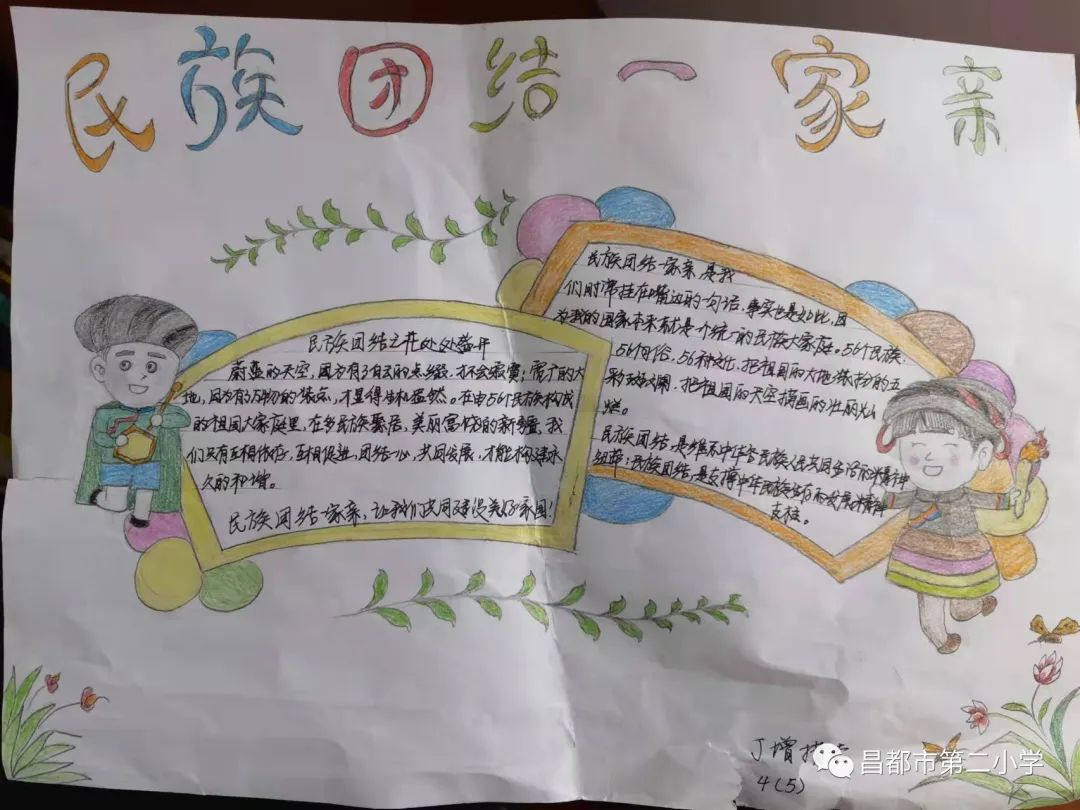 民族团结一家亲
民族团结一家亲,是我
们时常挂在嘴边的一句话,事实也是如此,因
为我的国家本来就是一个统一的民族大家庭。56个民族、
56个习俗、56种文化,把祖国的大地缤纷的五
彩斑斓,把祖国的天空描画的壮丽灿
烂。
民族团结,是维系中华各民族人民共同生活的精神
纽带;民族团结,是支撑中华民族生存和发展精神
支柱。
民族团结之花处处盛开
蔚蓝的天空,因为有白云的点缀,才不会寂寞;宽广的大
地,因为有万物的装点,才显得生机盎然。在由56个民族构成
的祖国大家庭里,在多民族聚居,美丽富饶的新疆,我
们只有互相信任,互相促进,团结一心,共同发展,才能构建永
久的和谐。
民族团结一家亲,让我们共同建设美好家园!
丁增
4(5)
昌都市第二小学